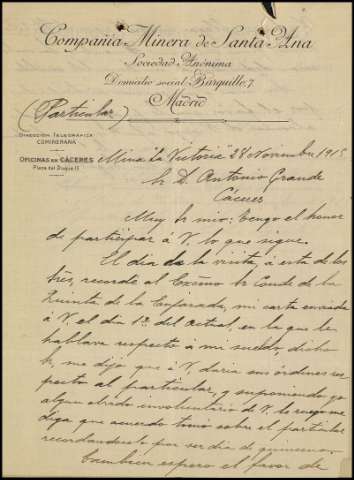 Compañia Minera de Santa Ana
Sociedad Anónima
Domicilio social Barquillo, 7.
Madrid
(Particular)
DIRECCIÓN TELEGRÁFICA
COMINERANA
OFICINAS EN CÁCERES
Plaza del Duque 15
Mina "La Victoria" 28 Noviembre 1915
Sr D. Antonio Grande
Cáceres
Muy Sr mio: Tengo el honor
de participar á V. lo que sigue.
El dia de la visita, á esta de los
tres, recordé al Excmo Sr Conde de la
Quinta de la Enjarada, mi carta enviada
á V. el dia 1º del actual, en la que le
hablava respecto á mi sueldo, dicho
Sr, me dijo que á V. daria sus órdenes res-
pecto al particular, y suponiendo ya
algun olvido involuntario de V. le ruego me
diga que acuerdo tomó sobre el particular
recordandoselo por ser dia de quincena.
Tambien espero el favor de